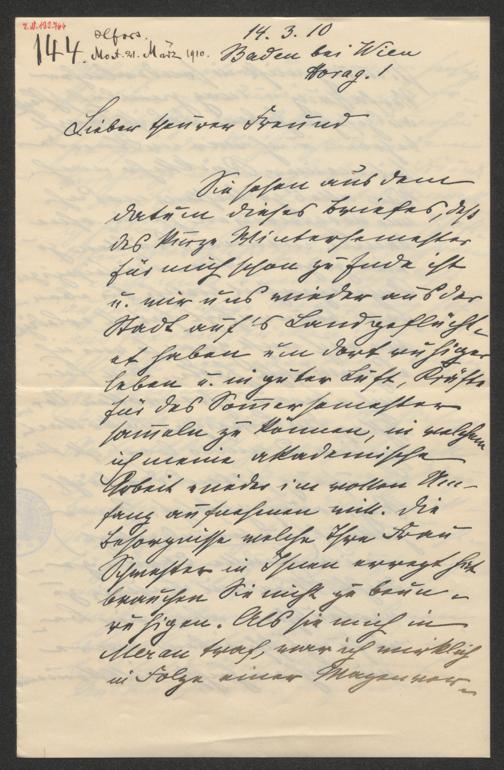 144.
Most. 21. März 1910.
14. 3. 10
Baden bei Wien
Lieber theurer Freund
Sie sehen aus dem
datum dieses Briefes, daß
das kurze Wintersemester
für mich schon zu Ende ist
u. wir uns wieder aus der
Stadt auf's Land geflücht-
et haben um dort ruhiger
leben u. in guter Luft, Kräfte
für das Som̅ersemester
sam̅eln zu können, in welchem
ich meine akademische
Arbeit wieder im vollen Um-
fang aufnehmen will. die
Besorgnisse welche Ihre Frau
Schwester in Ihnen erregt hat
brauchen Sie nicht zu beun-
ruhigen. Als sie mich in
Meran traf, war ich wirklich
in Folge einer Magenver-